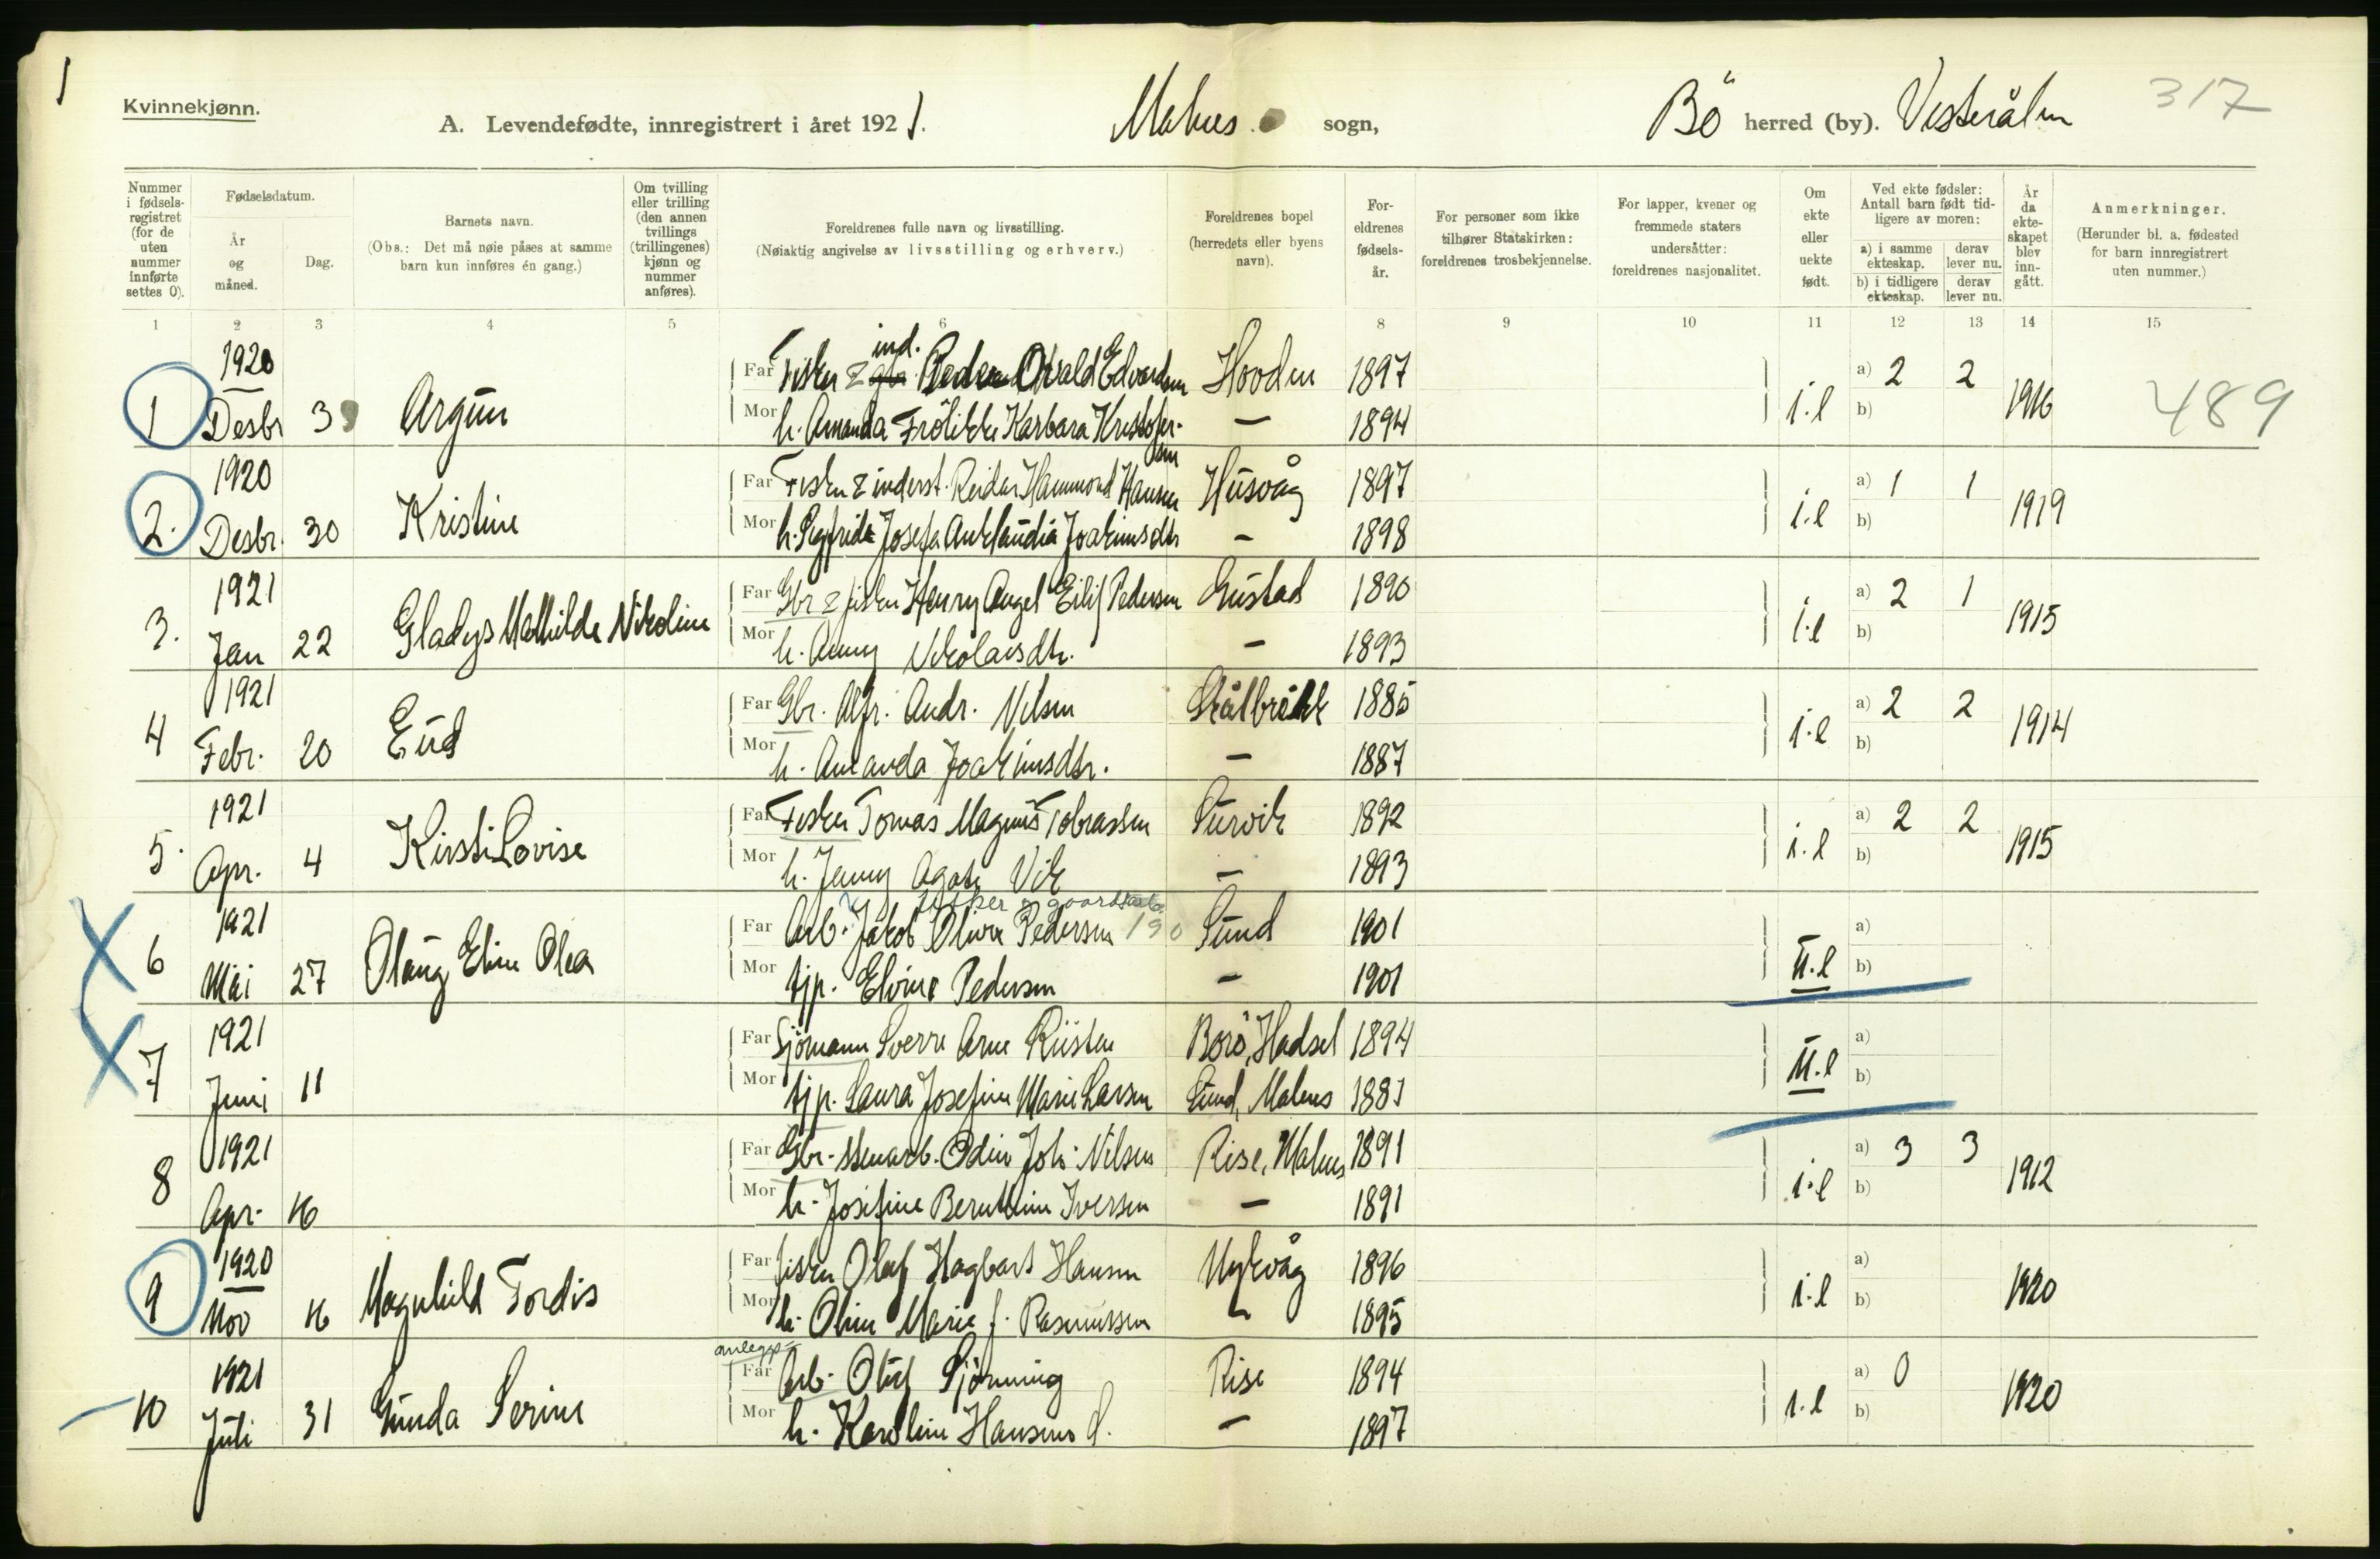 1
Kvinnekjønn.
A. Levendefødte, innregistrert i året 1921.
Malnes sogn,
Bö herred (by). Vesterålen
317
Nummer i fødsels-registret (for de uten nummer innførte settes 0).
Fødselsdatum.
År og måned.
Dag.
Barnets navn.
(Obs.: Det må nøie påses at samme barn kun innføres én gang.)
Om tvilling eller trilling (den annen tvillings (trillingenes) kjønn og nummer anføres).
Foreldrenes fulle navn og livsstilling.
(Nøiaktig angivelse av livsstilling og erhverv.)
Foreldrenes bopel (herredets eller byens navn).
For-eldrenes fødsels-år.
For personer som ikke tilhører Statskirken: foreldrenes trosbekjennelse.
For lapper, kvener og fremmede staters undersåtter: foreldrenes nasjonalitet.
Om ekte eller uekte født.
Ved ekte fødsler: Antall barn født tid-ligere av moren:
a) i samme ekteskap.
derav lever nu.
b) i tidligere ekteskap.
derav lever nu.
År da ekte-skapet blev inn-gått.
Anmerkninger.
(Herunder bl. a. fødested for barn innregistrert uten nummer.)
1 2 3 4 5 6 8 9 10 11 12 13 14 15
1920 ind.
Far Fisker & Peder Osvald Edvardsen Hovden 1897 a) 2 2
1 Desbr 3 Argun i.l 1916 489
Mor h. Amanda Frölikke Karbara Kristofer-sen — 1894 b)
1920
Far Fisker & inderst. Reidar Hammond Hansen Husvåg 1897 a) 1 1
2. Desbr. 30 Kristine i.l 1919
Mor h. Sigfrida Josefa Anklaudia Joakimsdtr — 1898 b)
1921
Far Gbr & fisker Henry Angel Eilif Pedersen Gustad 1890 a) 2 1
3. Jan 22 Gladys Mathilde Nikoline i.l 1915
Mor h. Anny Nikolaisdtr. — 1893 b)
1921
Far Gbr. Alfr. Andr. Nilsen Skålbrekk 1885 a) 2 2
4 Febr. 20 Eud i.l 1914
Mor h. Amanda Joakimsdtr. — 1887 b)
1921
Far Fisker Tomas Magnus Tobiassen Purvik 1892 a) 2 2
5. Apr. 4 Kirsti Lovise i.l 1915
Mor h. Jenny Agate Vik — 1893 b)
fisker & gaards
1921
Far Arb. Jakob Oliver Pedersen 190 Sund 1901 a)
6 Mai 27 Olaug Eline Olea U.l
Mor tjp. Elvine Pedersen — 1901 b)
1921
Far Sjömann Sverre Arne Riisten Borö, Hadsel 1894 a)
7 Juni 11 U.l
Mor tjp. Laura Josefine Marie Larsen Sund, Malnes 1881 b)
1921
Far Gbr- Odin Joh. Nilsen Rise, Malnes 1891 a) 3 3
8 Apr. 16 i.l 1912
Mor h. Josefine Bernthine Iversen — 1891 b)
1920
Far fisker Olaf Hagbart Hansen Nykvåg 1896 a)
9 Nov 16 Magnhild Tordis i.l 1920
Mor h. Oline Marie f. Rasmussen — 1895 b)
anleggs-
1921
Far Arb. Olaf Sjönning Rise 1894 a) 0
10 Juli 31 Gunda Serine i.l 1920
Mor h. Karoline Hansens d. — 1897 b)